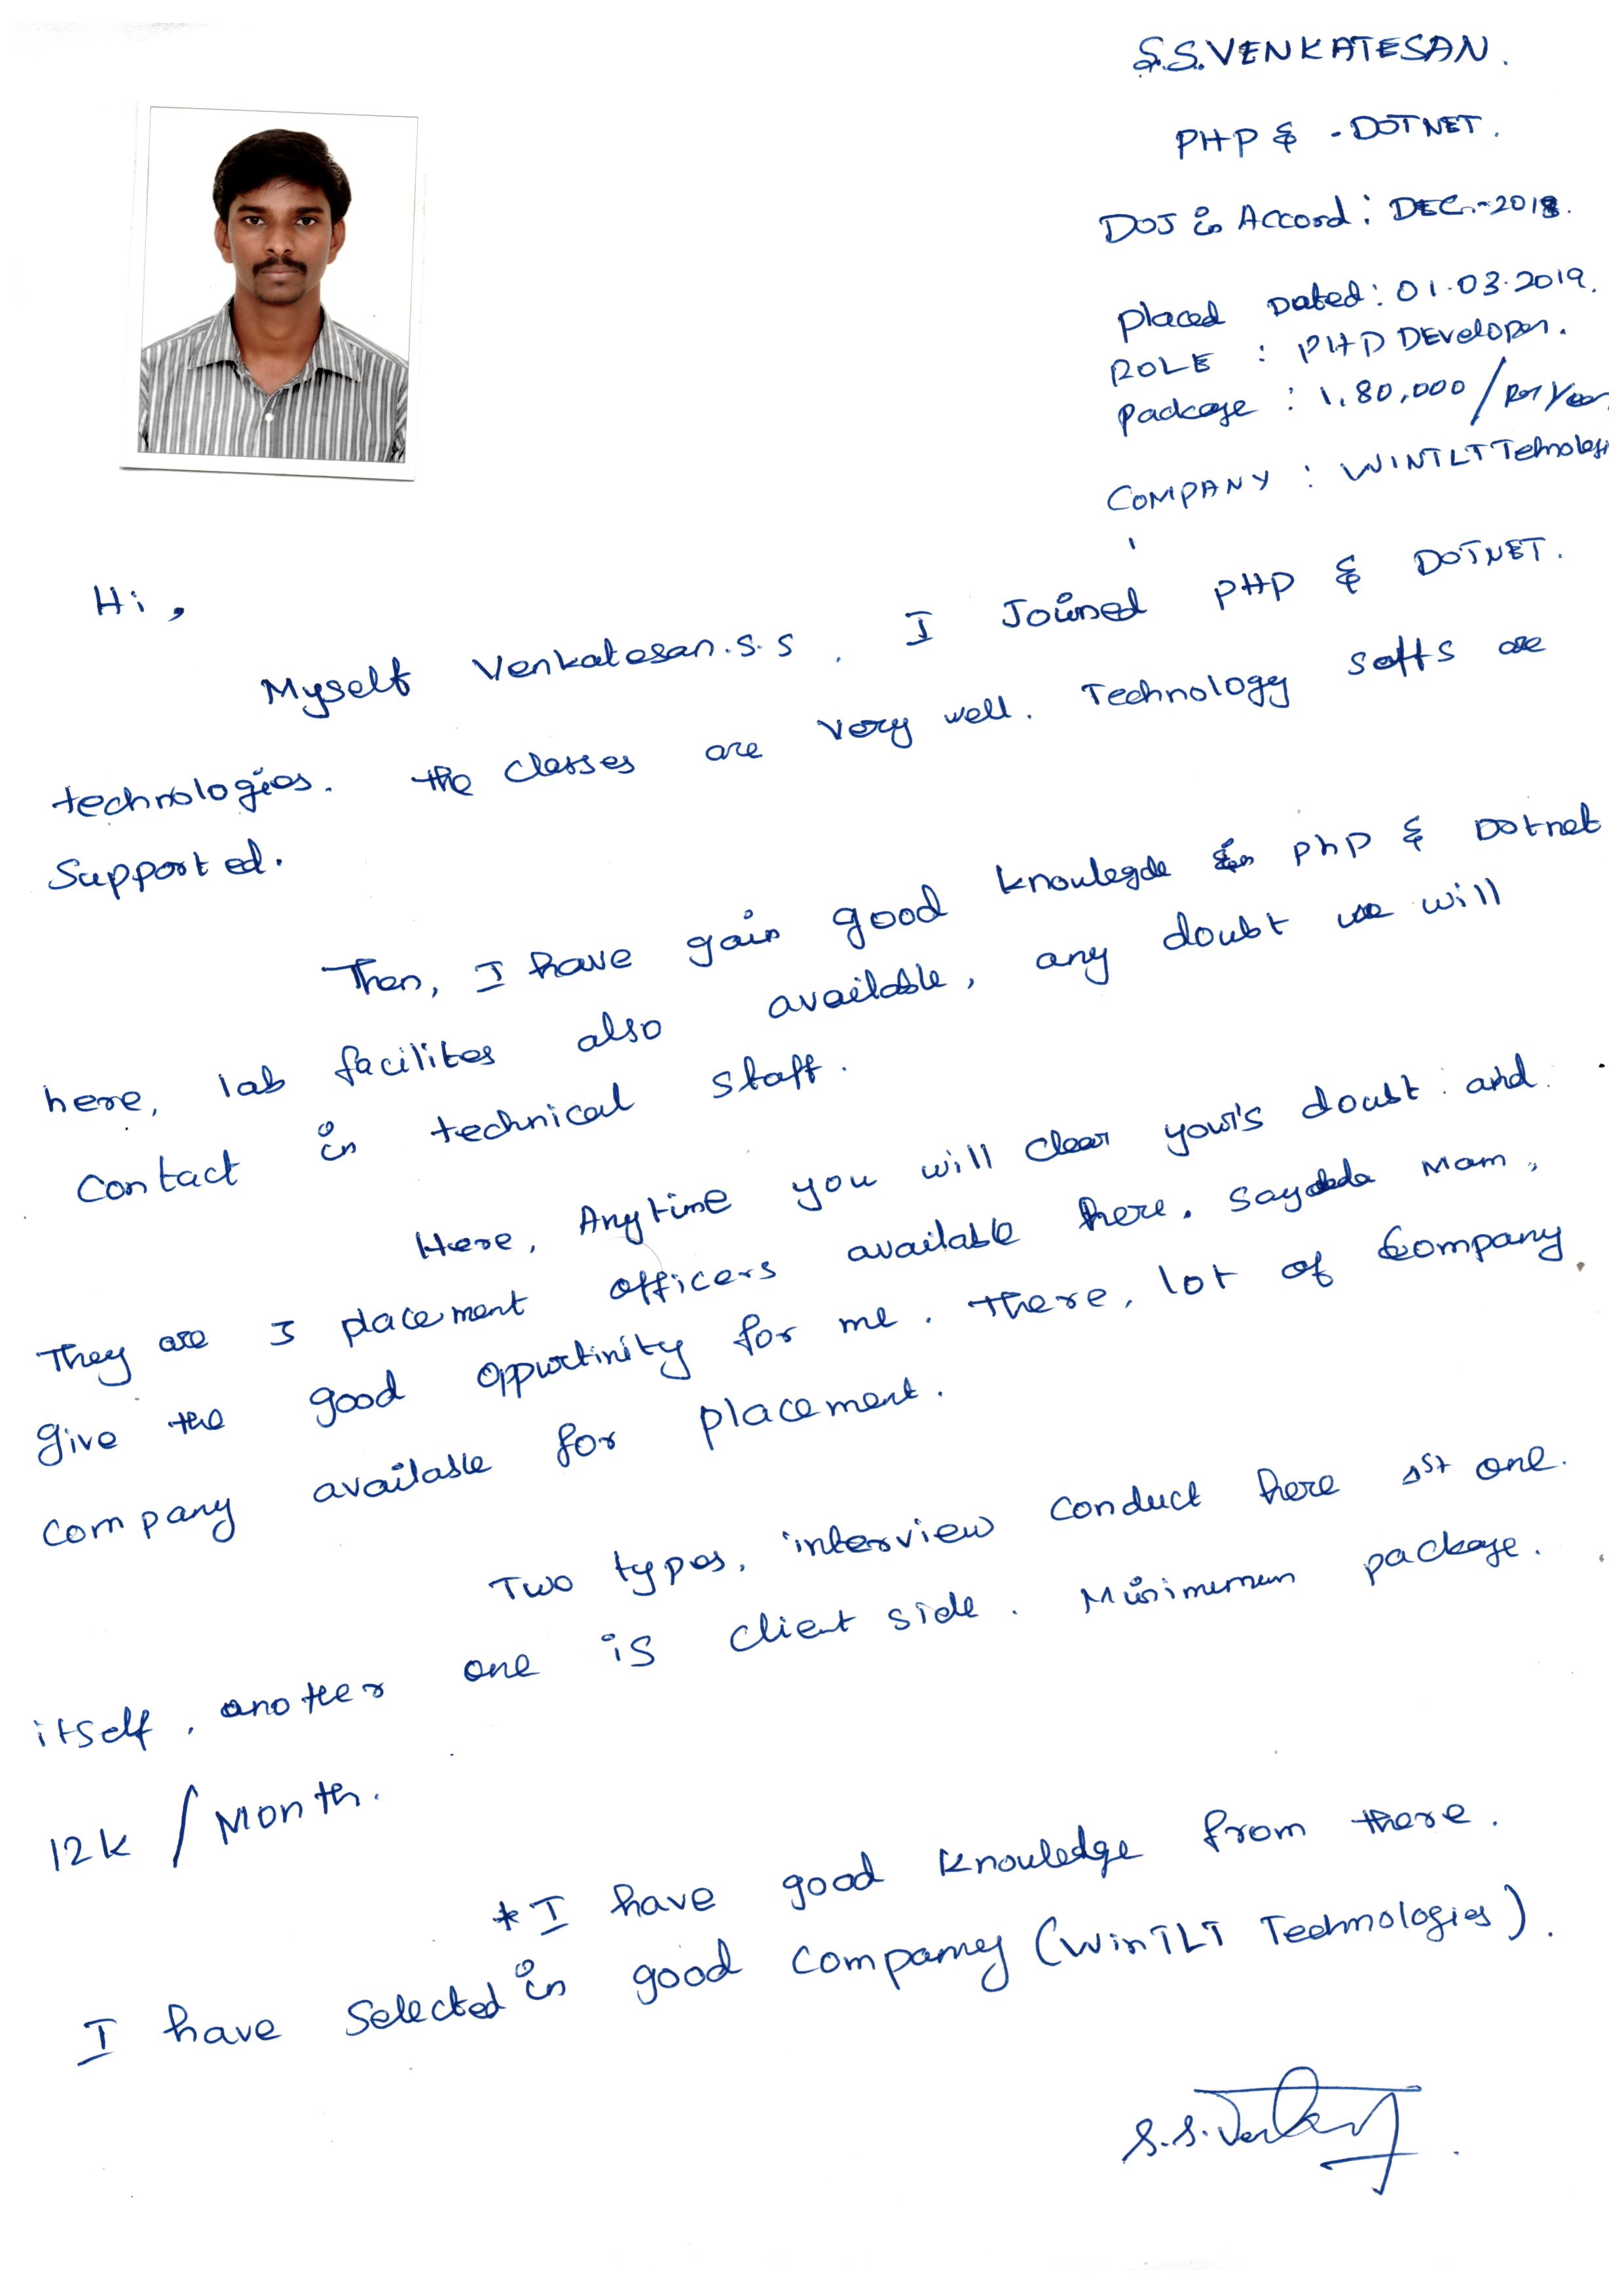 S.S.VENKATESAN.
PHP & -DOTNET.
DOJ in Accord: DEC.-2018.
Placed Dated: 01.03.2019.
ROLE : PHP DEveloper.
Package : 1,80,000/Per Year
COMPANY : WINTLT Tehnologi
Hi,
Myself Venkatesan.s.s. I Joined PHP & DOTNET.
technologies. the classes are very well. Technology saffs are
Supported.
Then, I have gain good knoulegde in php & Dotnet
here, lab facilites also available, any doubt we will
Contact in technical staff.
Here, Anytime you will clear your's doubt and
They are 3 placement officers available here. Sayeda Mam,
give the good oppurtinity for me. There, lot of Company
company available for placement.
Two types, interview conduct here 1st one.
itself, another one is client side. Minimumum package.
12k / Month.
*I have good knouledge from there.
I have Selected in good compamy (WinTLT Technologies).
S.S.Venkat